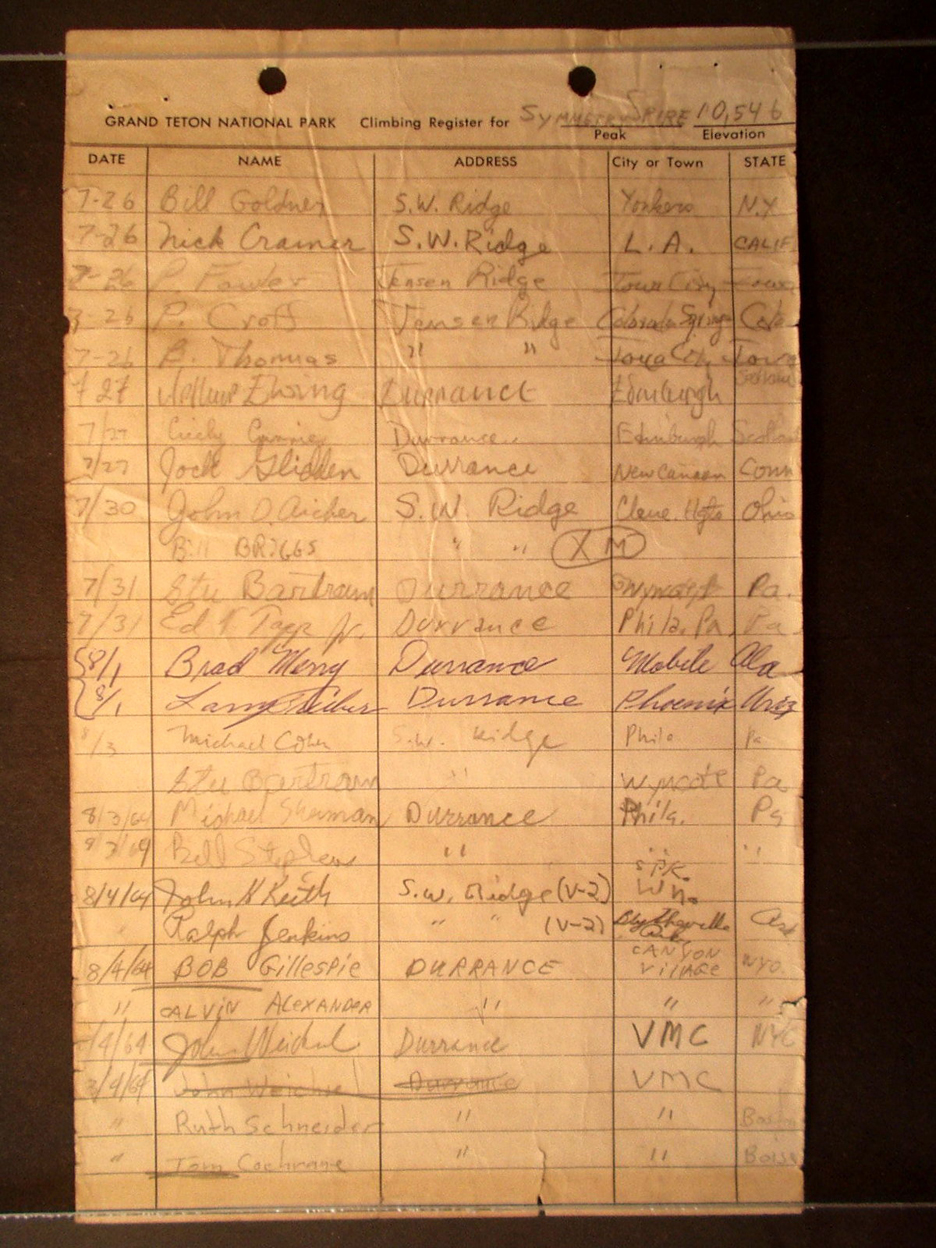 GRAND TETON NATIONAL PARK Climbing Register for SYMMETRY SPIRE 10,546
Peak Elevation
DATE NAME ADDRESS City or Town STATE
7-26 Bill Goldner S.W. Ridge Yonkers N.Y
7-26 Nick Cramer S.W. Ridge L.A. CALIF.
7-26 P. Fowler Jensen Ridge Iowa City Iowa
7-26 P. Croff Jensen Ridge Colorado Springs Colo
7-26 Thomas " " Iowa City Iowa
7 27 Ewing Durrance Edinburgh Scotland
7/27 Durrance Edinburgh Scotland
7/27 Jock Glidden Durrance New Canaan Conn
7/30 John D. Aicher S.W. Ridge Cleve. Hgts Ohio
Bill BRIGGS " " XM
7/31 Stu Bartram Durrance Wyncote Pa.
7/31 Ed Jr. Durrance Phila, Pa, Pa
8/1 Brad Merry Durrance Mobile Ala
8/1 Larry Durrance Phoenix Ariz
8/3 Michael Cohen S.W. Ridge Phila. Pa
Stu Bartram " Wyncote Pa
8/3/64 Michael Sherman Durrance Phila. Pa
8/3/64 Bill Stephen " " "
8/4/64 John K Keith S.W. Ridge (V-2) SPK. Wn.
Ralph Jenkins " " (V-2) Blytheville Ark
8/4/64 BOB Gillespie DURRANCE CANYON VILLAGE WYO.
" CALVIN ALEXANDER " " "
/4/64 John Weichel Durrance VMC NYC
8/4/64 John Weichel Durrance VMC
" Ruth Schneider " "
" Tom Cochrane " " Boise